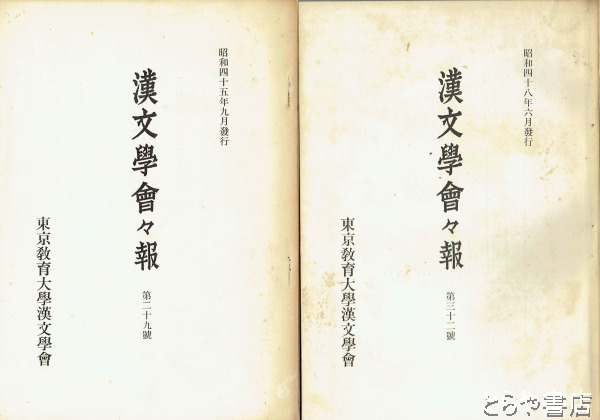 昭和四十五年九月發行
漢文學會々報
第二十九號
東京教育大學漢文學會
昭和四十八年六月發行
漢文學會々報
第三十二號
東京教育大學漢文學會
とらや書店